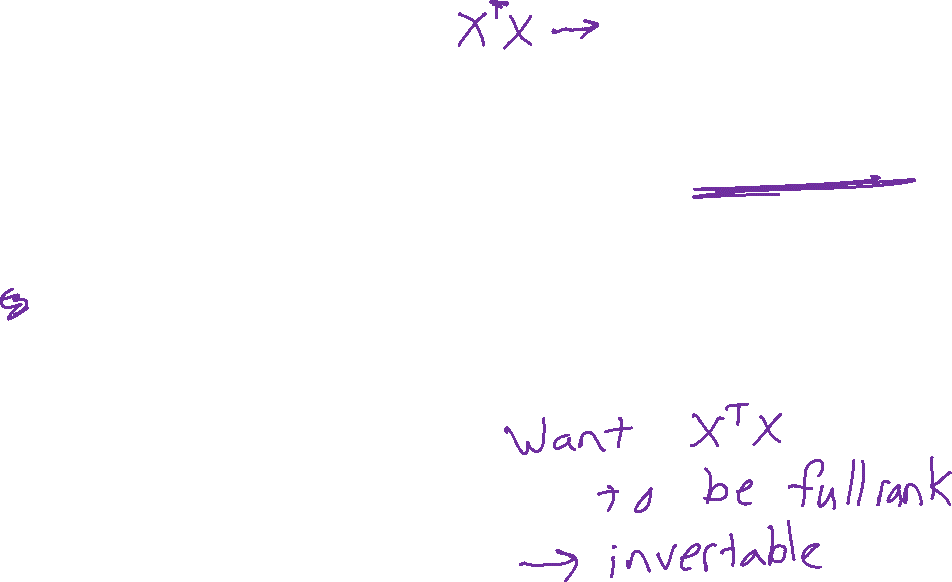 XᵀX →
Want XᵀX
to be fullrank
→ invertable